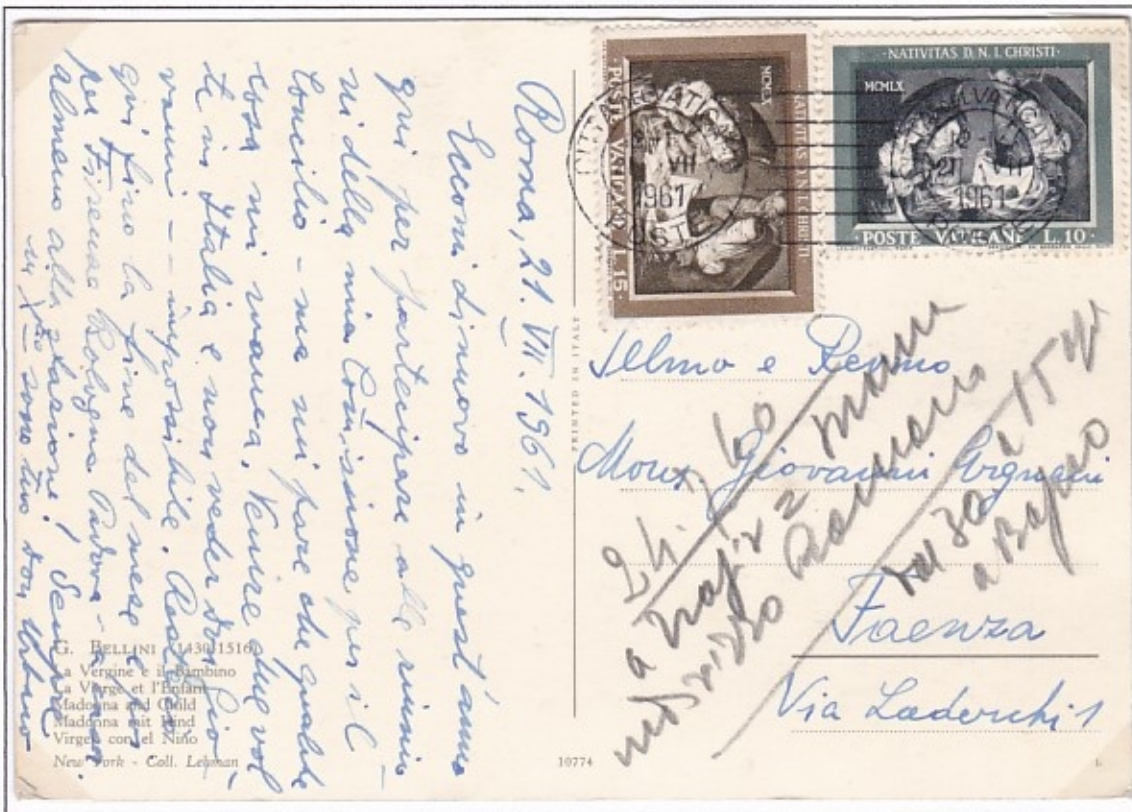 Roma, 21. VII. 1961.
Eccomi di nuovo in quest'anno
qui per partecipare alle riunio
ni della mia Com̃issione per il
Concilio - ma mi pare che qualche
cosa mi manca. Venire due vol
te in Italia e non veder don Gio
vanni - impossibile. Resterò
qui fino la fine del mese e poi
per Firenze Bologna Padova - a casa.
almeno alla stazione! Sempre
in Xto sono tuo don
G. BELLINI (1430-1516)
La Vergine e il Bambino
La Vierge et l'Enfant
Madonna and Child
Madonna mit Kind
Virgen con el Niño
New York - Coll. Lehman
PRINTED IN ITALY
10774
POSTE VATICANE L. 15
NATIVITAS D. N. I. CHRISTI
MCMLX
·NATIVITAS D. N. I. CHRISTI·
MCMLX
·POSTE VATICANE L. 10·
CITTÀ DEL VATICANO
VII
1961
POSTE
21 VII
1961
Illmo e Revmo
Mons. Giovanni
Faenza
Via Laderchi 1
a
2
dal 30 a 15
a Bagno